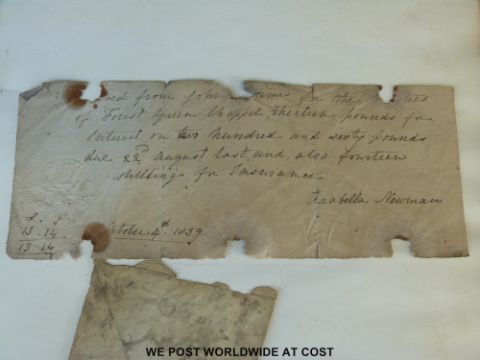 from John for the
of Forest Green Chappel thirteen pounds for
Interest on two hundred and sixty pounds
due 22nd August last, and also fourteen
shillings for Insurance
Isabella Newman
13.14
13.14
October 4th 1839
WE POST WORLDWIDE AT COST